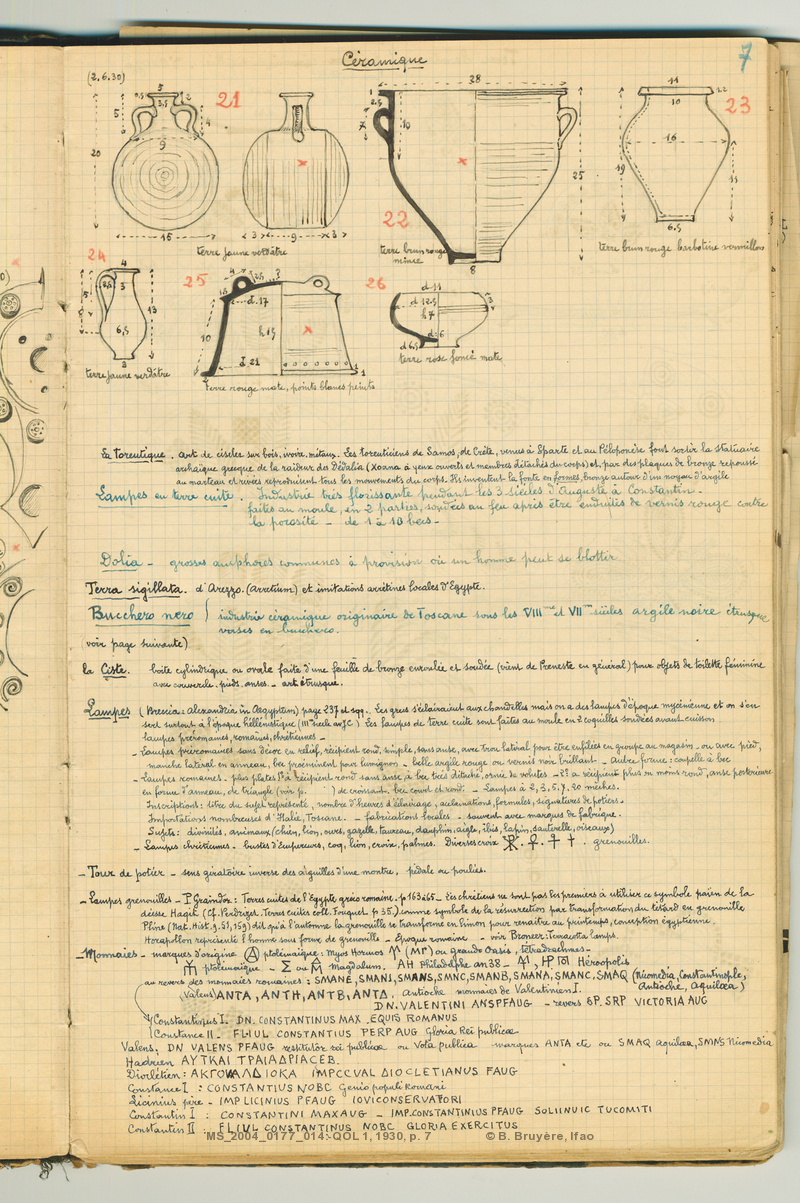 Céramique
7
(2.6.30)
21
22
23
terre jaune verdâtre
terre brun rouge
mince
terre brun rouge barbotine vermillon
24
25
26
terre jaune verdâtre
terre rouge mate, points blancs peints
terre rose foncé mate
La toreutique. art de ciseler sur bois, ivoire, métaux. Les toreuticiens de Samos, de Crète, venus à Sparte et au Péloponèse font sortir la statuaire
archaïque grecque de la raideur des Dédalia (Xoana à yeux ouverts et membres détachés du corps) et, par des plaques de bronze repoussé
au marteau et rivées reproduisent tous les mouvements du corps. Ils inventent la fonte en formes, bronze autour d'un noyau d'argile
Lampes en terre cuite. Industrie très florissante pendant les 3 siècles d'Auguste à Constantin -
faites au moule, en 2 parties, soudées au feu après être enduites de vernis rouge contre
la porosité - de 1 à 10 becs -
Dolia - grosses amphores communes à provision où un homme peut se blottir
Terra sigillata. d'Arezzo. (Arretium) et imitations arrétines locales d'Egypte.
Bucchero nero { industrie céramique originaire de Toscane sous les VIII et VII siècles argile noire étrusque
vases en bucchero.
(voir page suivante)
la Ciste. boîte cylindrique ou ovale faite d'une feuille de bronze enroulée et soudée (vient de Preneste en général) pour objets de toilette féminine
avec couvercle. pieds. anses - art étrusque.
Lampes (Brescia: Alexandria in Aegyptum) page 237 et sqq. Les grecs s'éclairaient aux chandelles mais on a des lampes d'époque mycénienne et on s'en
sert surtout à l'époque hellénistique (III siècle av JC) Les lampes de terre cuite sont faites au moule en 2 coquilles soudées avant cuisson
lampes préromaines, romaines, chrétiennes -
- Lampes préromaines sans décor en relief, récipient rond, simple, sans anse, avec trou latéral pour être enfilées en groupe au magasin - ou avec pied,
manche latéral en anneau, bec proéminent pour lumignon - belle argile rouge ou vernis noir brillant - Autre forme: coupelle à bec
- Lampes romaines. plus plates 1° à récipient rond sans anse à bec très détaché, ornée de volutes - 2° à récipient plus ou moins rond, anse postérieure
en forme d'anneau, de triangle (voir p. ) de croissant. bec court et rond. - Lampes à 2, 3, 5, 7, 20 mèches.
Inscriptions: titre du sujet représenté, nombre d'heures d'éclairage, acclamations, formules, signatures de potiers -
Importations nombreuses d'Italie, Toscane. - fabrications locales - souvent avec marques de fabrique.
Sujets: divinités, animaux (chien, lion, ours, gazelle, taureau, dauphin, aigle, ibis, lapin, sauterelle, oiseaux)
- Lampes chrétiennes - bustes d'Empereurs, coq, lion, croix, palmes. Diverses croix . grenouilles.
- Tour de potier - sens giratoire inverse des aiguilles d'une montre. pédale ou poulies.
- Lampes grenouilles - P. Graindor: Terres cuites de l'Egypte gréco romaine. p 163 à 65 - Les chrétiens ne sont pas les premiers à utiliser ce symbole païen de la
déesse Haqit (Cf. Perdrizet. Terres cuites coll. Fouquet p 35.) comme symbole de la résurrection par transformation du têtard en grenouille
Pline (Nat. Hist. 9.51, 159) dit qu'à l'automne la grenouille se transforme en limon pour renaître au printemps, conception égyptienne.
Horapollon représente l'homme sous forme de grenouille - Epoque romaine - voir Broneer: Terracotta lamps.
- Monnaies - marques d'origine ptolémaïque: Myos Hormos (MP) ou Grande Oasis, tétradrachmes -
ptolémaïque - Σ ou Magdalum. AH Philadelphe an 38 - Hiéropolis
au revers des monnaies romaines: SMANE, SMANI, SMANS, SMNC, SMANB, SMANA, SMANC, SMAQ (Nicomedia, Constantinople,
(Valens) ANTA, ANTH, ANTB, ANTΔ. Antioche monnaies de Valentinien I. Antioche, Aquilæa)
DN. VALENTINI ANSPFAUG - revers 6P. SRP VICTORIA AUG
Constantinus I. DN. CONSTANTINUS MAX EQUIS ROMANUS
Constance II - FL IUL CONSTANTIUS PERP AUG Gloria Rei publicæ
Valens: DN VALENS PFAUG restitutor rei publicæ ou Vota publica marques ANTA etc ou SMAQ Aquilæa, SMNS Nicomedia
Hadrien AYTKAI TPAIAΔPIACEB.
Dioclétien: IMPCCVAL DIOCLETIANUS FAUG
Constance I : CONSTANTIUS NOBC Genio populi Romani
Licinius père - IMP LICINIUS PFAUG IOVICONSERVATORI
Constantin I : CONSTANTINI MAXAUG - IMP. CONSTANTINIUS PFAUG SOLIINUIC TUCOMITI
Constantin II : FL IUL CONSTANTINUS NOBC GLORIA EXERCITUS
MS_2004_0177_014:-QOL 1, 1930, p. 7 © B. Bruyère, Ifao